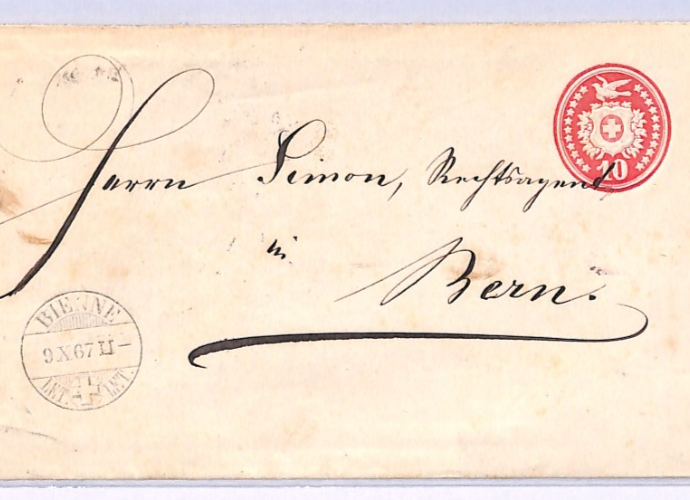 10
Herrn Simon, Rechtsagent,
in
Bern.
BIENNE
9 X 67 II –
LET. LET.